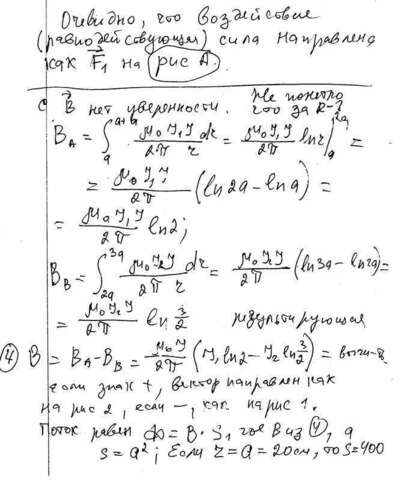 Очевидно, что воздействие
(равнодействующая) сила направлена
как F⃗₁ на рис A.
с B⃗ нет уверенности. Не понятно что за R-?
B_A = ∫_a^{a+a} μ₀I₁I/2π dr/r = μ₀I₁I/2π ln r|_a^{2a} =
= μ₀I₁I/2π (ln2a - lna) =
= μ₀I₁I/2π ln2;
B_B = ∫_{2a}^{3a} μ₀I₂I/2π dr/r = μ₀I₂I/2π (ln3a - ln2a) =
= μ₀I₂I/2π ln 3/2 результирующая
④ B = B_A - B_B = μ₀I/2π (I₁ ln2 - I₂ ln 3/2) =
если знак +, вектор направлен как
на рис 2, если -, как на рис 1.
Поток равен Φ = B · S, где B из ④, а
S = a²; Если r = a = 20см, то S = 400